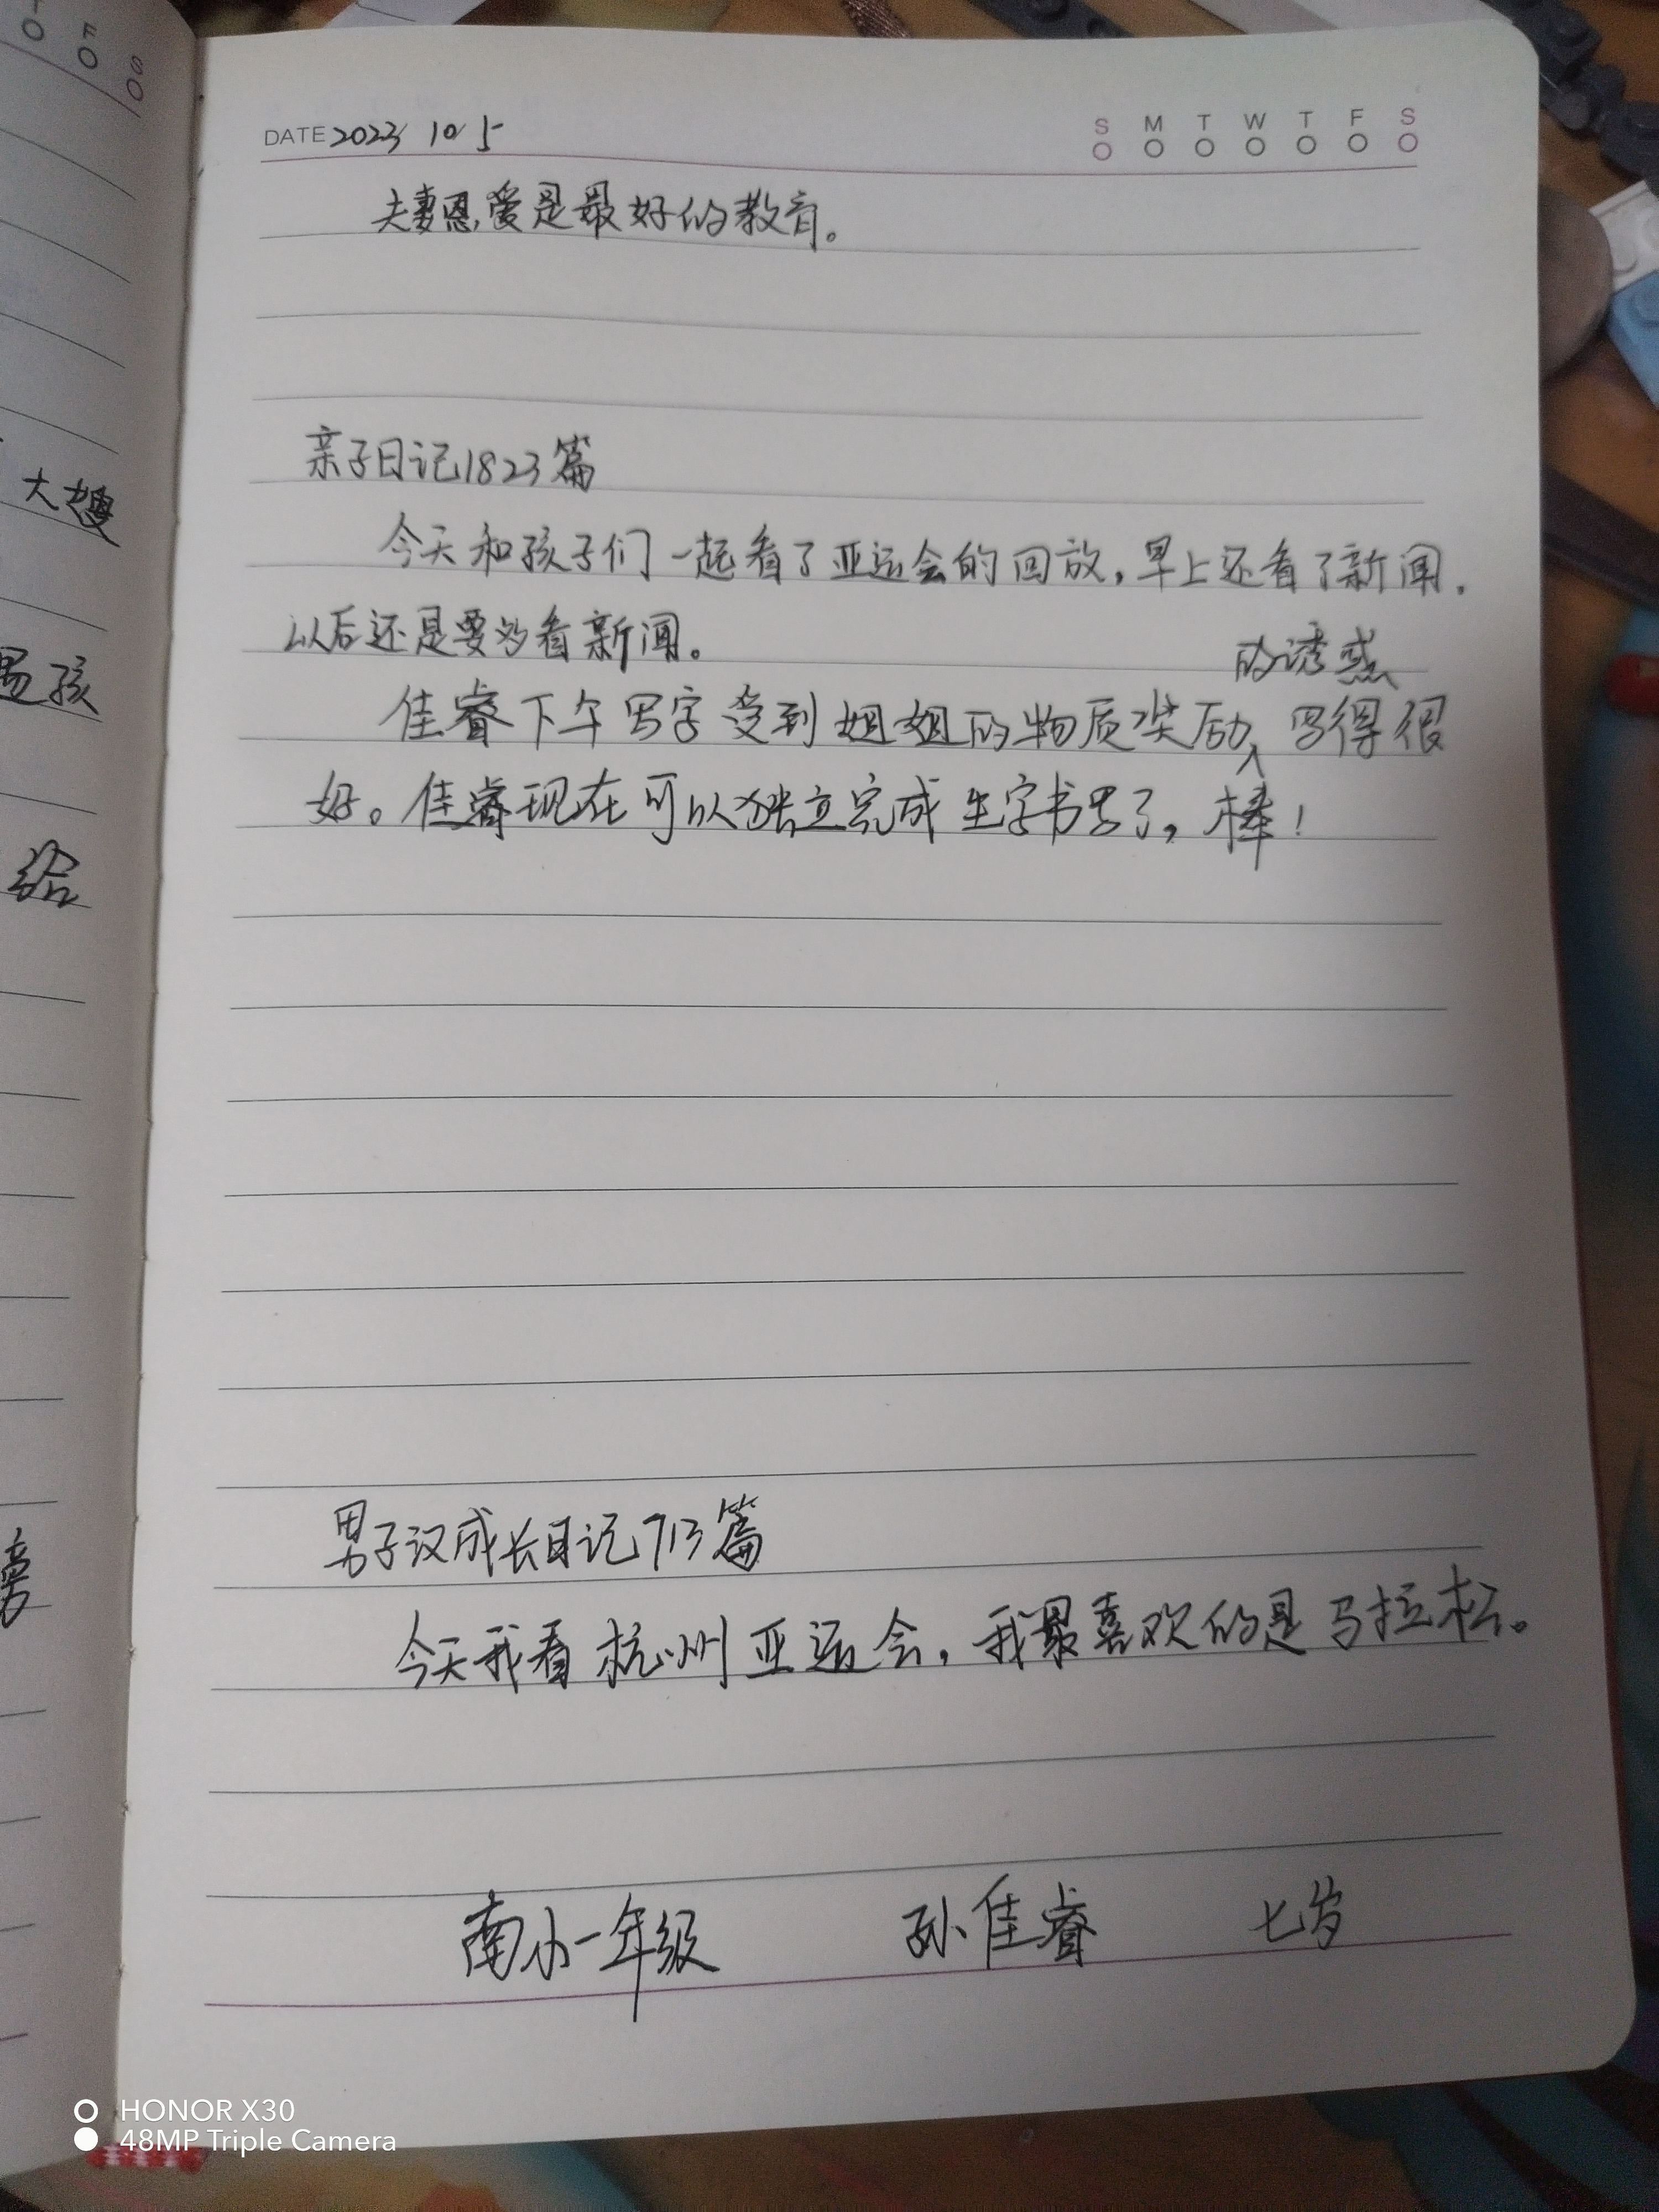 T F S
大嫂
男孩
给
DATE 2023 10 5
S M T W T F S
夫妻恩爱是最好的教育。
亲子日记1823篇
今天和孩子们一起看了亚运会的回放,早上还看了新闻.
以后还是要多看新闻。
的诱惑
佳睿下午写字受到姐姐的物质奖励∧写得很
好。佳睿现在可以独立完成生字书写了,棒!
男子汉成长日记713篇
今天我看杭州亚运会,我最喜欢的是马拉松。
南小一年级 孙佳睿 七岁
HONOR X30
48MP Triple Camera